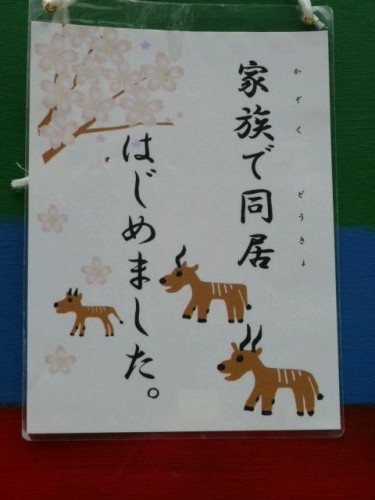 かぞく どうきょ
家族で同居
はじめました。